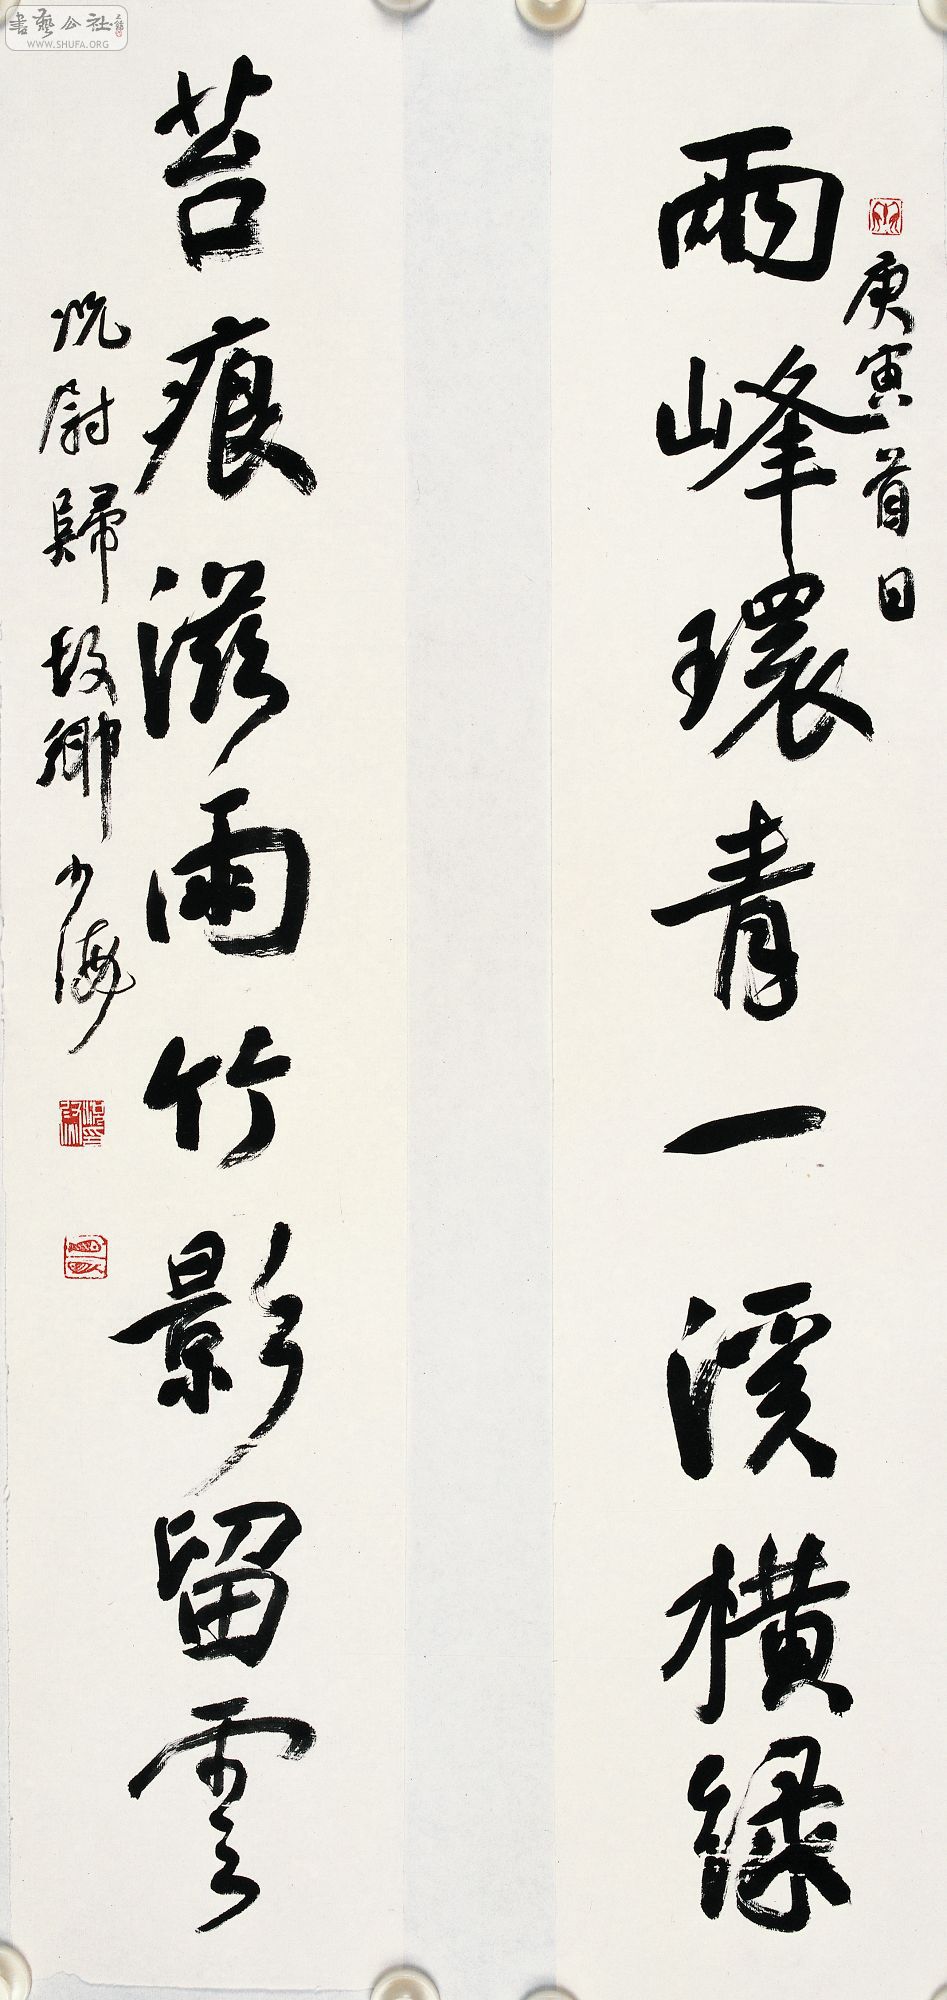 書藝公社
WWW.SHUFA.ORG
庚寅首日
兩峰環青一溪橫綠
苔痕滋雨竹影留雲
尉歸故鄉 少海